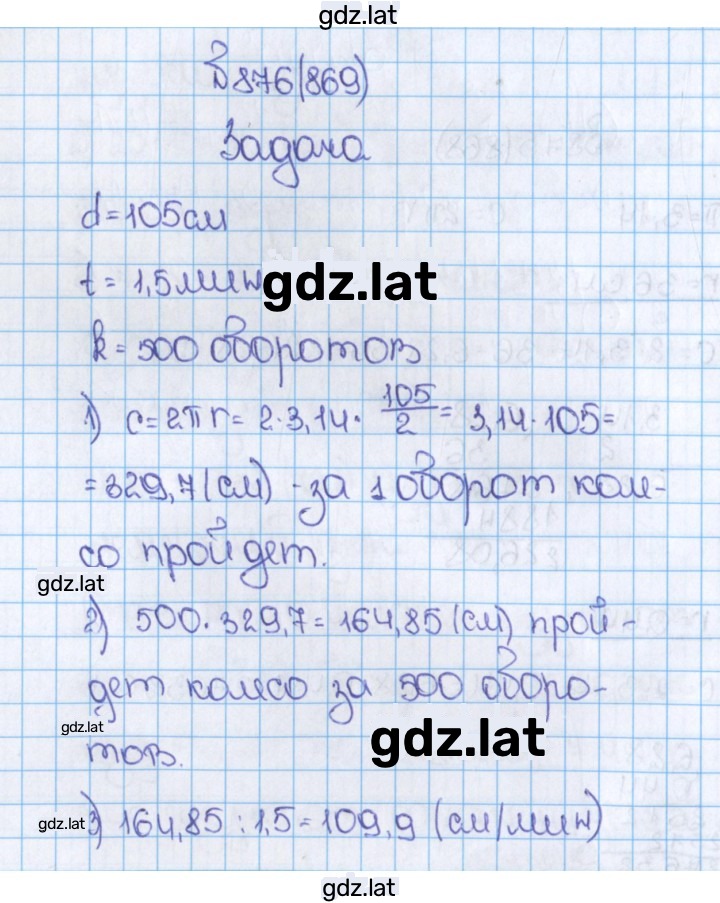 gdz.lat
№876(869)
Задача
d=105см
t=1,5мин
gdz.lat
k=500 оборотов
1) c=2πr=2·3,14·105/2=3,14·105=
=329,7(см) - за 1 оборот коле-
со пройдет.
gdz.lat
2) 500·329,7=164,85(см) прой-
дет колесо за 500 оборо-
gdz.lat
тов.
gdz.lat
gdz.lat
3) 164,85:1,5=109,9 (см/мин)
gdz.lat